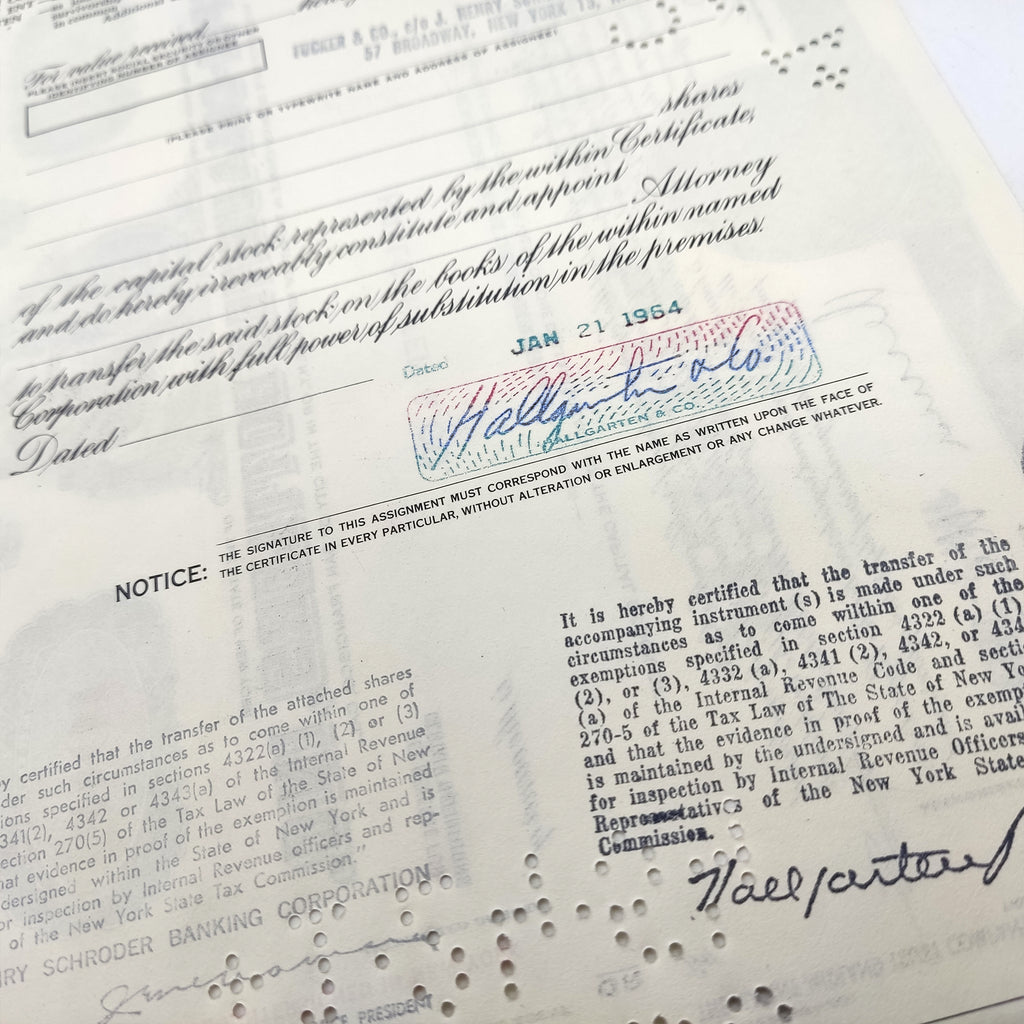 For value received
PLEASE INSERT SOCIAL SECURITY OR OTHER
IDENTIFYING NUMBER OF ASSIGNEE
TUCKER & CO., c/o J. HENRY
57 BROADWAY, NEW YORK 15,
(PLEASE PRINT OR TYPEWRITE NAME AND ADDRESS OF ASSIGNEE)
shares
of the capital stock represented by the within Certificate,
and do hereby irrevocably constitute and appoint
Attorney
to transfer the said stock on the books of the within named
Corporation with full power of substitution in the premises.
Dated
Dated JAN 21 1964
Hallgarten & Co.
HALLGARTEN & CO.
NOTICE: THE SIGNATURE TO THIS ASSIGNMENT MUST CORRESPOND WITH THE NAME AS WRITTEN UPON THE FACE OF
THE CERTIFICATE IN EVERY PARTICULAR, WITHOUT ALTERATION OR ENLARGEMENT OR ANY CHANGE WHATEVER.
y certified that the transfer of the attached shares
der such circumstances as to come within one of
ions specified in sections 4322(a) (1), (2) or (3)
341(2), 4342 or 4343(a) of the Internal Revenue
ection 270(5) of the Tax Law of the State of New
hat evidence in proof of the exemption is maintained
dersigned within the State of New York and is
or inspection by Internal Revenue officers and rep-
of the New York State Tax Commission."
NRY SCHRODER BANKING CORPORATION
VICE PRESIDENT
It is hereby certified that the transfer of the
accompanying instrument (s) is made under such
circumstances as to come wilthin one of the
exemptions specified in section 4322 (a) (1)
(2), or (3), 4332 (a), 4341 (2), 4342, or 434
(a) of the Internal Revenue Code and secti
270-5 of the Tax Law of The State of New Yo
and that the evidence in proof of the exemp
is maintained by the undersigned and is avail
for inspection by Internal Revenue Officers
Representatives of the New York State
Commission.